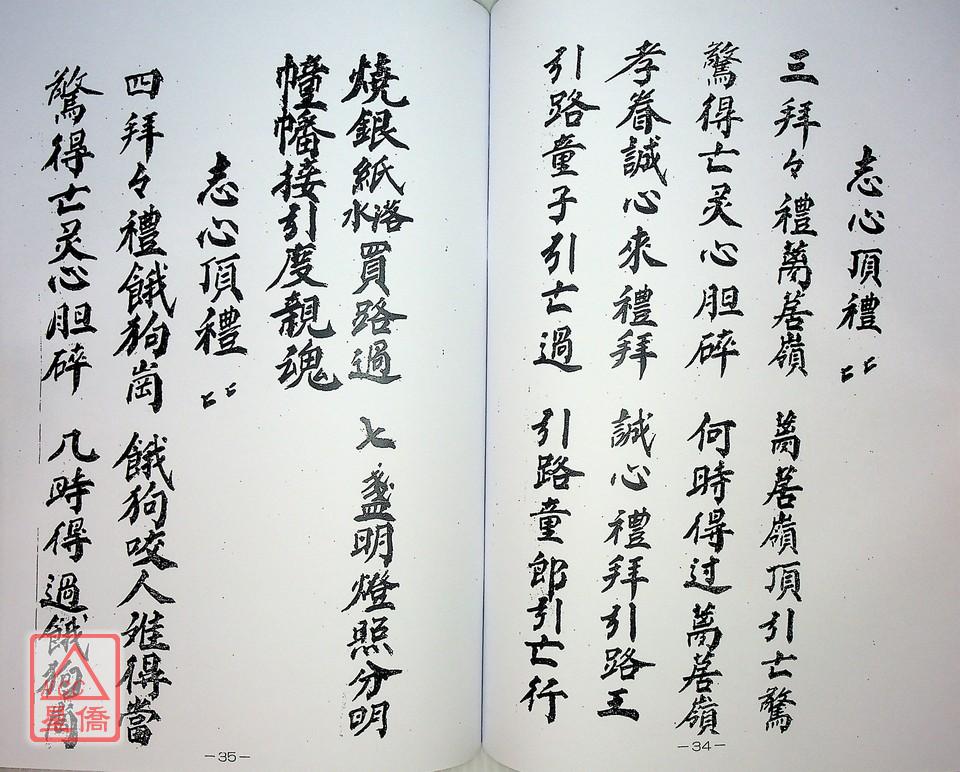 志心頂禮〻
三拜々禮蒿萫嶺 蒿萫嶺頂引亡驚
驚得亡灵心胆碎 何時得过蒿萫嶺
孝眷誠心來禮拜 誠心禮拜引路王
引路童子引亡過 引路童郎引亡行
-34-
燒銀紙落水買路過 七盏明燈照分明
幢幡接引度親魂
志心頂禮〻
四拜々禮餓狗崗 餓狗咬人难得當
驚得亡灵心胆碎 几時得過餓狗崗
-35-
星僑